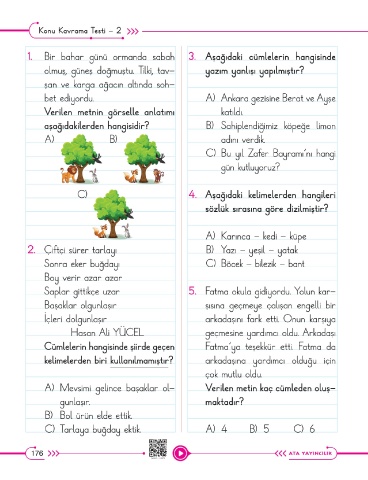 Konu Kavrama Testi - 2
1. Bir bahar günü ormanda sabah
olmuş, güneş doğmuştu. Tilki, tav-
şan ve karga ağacın altında soh-
bet ediyordu.
Verilen metnin görselle anlatımı
aşağıdakilerden hangisidir?
A)
B)
C)
2. Çiftçi sürer tarlayı
Sonra eker buğdayı
Boy verir azar azar
Saplar gittikçe uzar
Başaklar olgunlaşır
İçleri dolgunlaşır
Hasan Ali YÜCEL
Cümlelerin hangisinde şiirde geçen
kelimelerden biri kullanılmamıştır?
A) Mevsimi gelince başaklar ol-
gunlaşır.
B) Bol ürün elde ettik.
C) Tarlaya buğday ektik.
3. Aşağıdaki cümlelerin hangisinde
yazım yanlışı yapılmıştır?
A) Ankara gezisine Berat ve Ayşe
katıldı.
B) Sahiplendiğimiz köpeğe limon
adını verdik.
C) Bu yıl Zafer Bayramı'nı hangi
gün kutluyoruz?
4. Aşağıdaki kelimelerden hangileri
sözlük sırasına göre dizilmiştir?
A) Karınca - kedi - küpe
B) Yazı - yeşil - yatak
C) Böcek - bilezik - bant
5. Fatma okula gidiyordu. Yolun kar-
şısına geçmeye çalışan engelli bir
arkadaşını fark etti. Onun karşıya
geçmesine yardımcı oldu. Arkadaşı
Fatma'ya teşekkür etti. Fatma da
arkadaşına yardımcı olduğu için
çok mutlu oldu.
Verilen metin kaç cümleden oluş-
maktadır?
A) 4 B) 5 C) 6
176
ATA YAYINCILIK